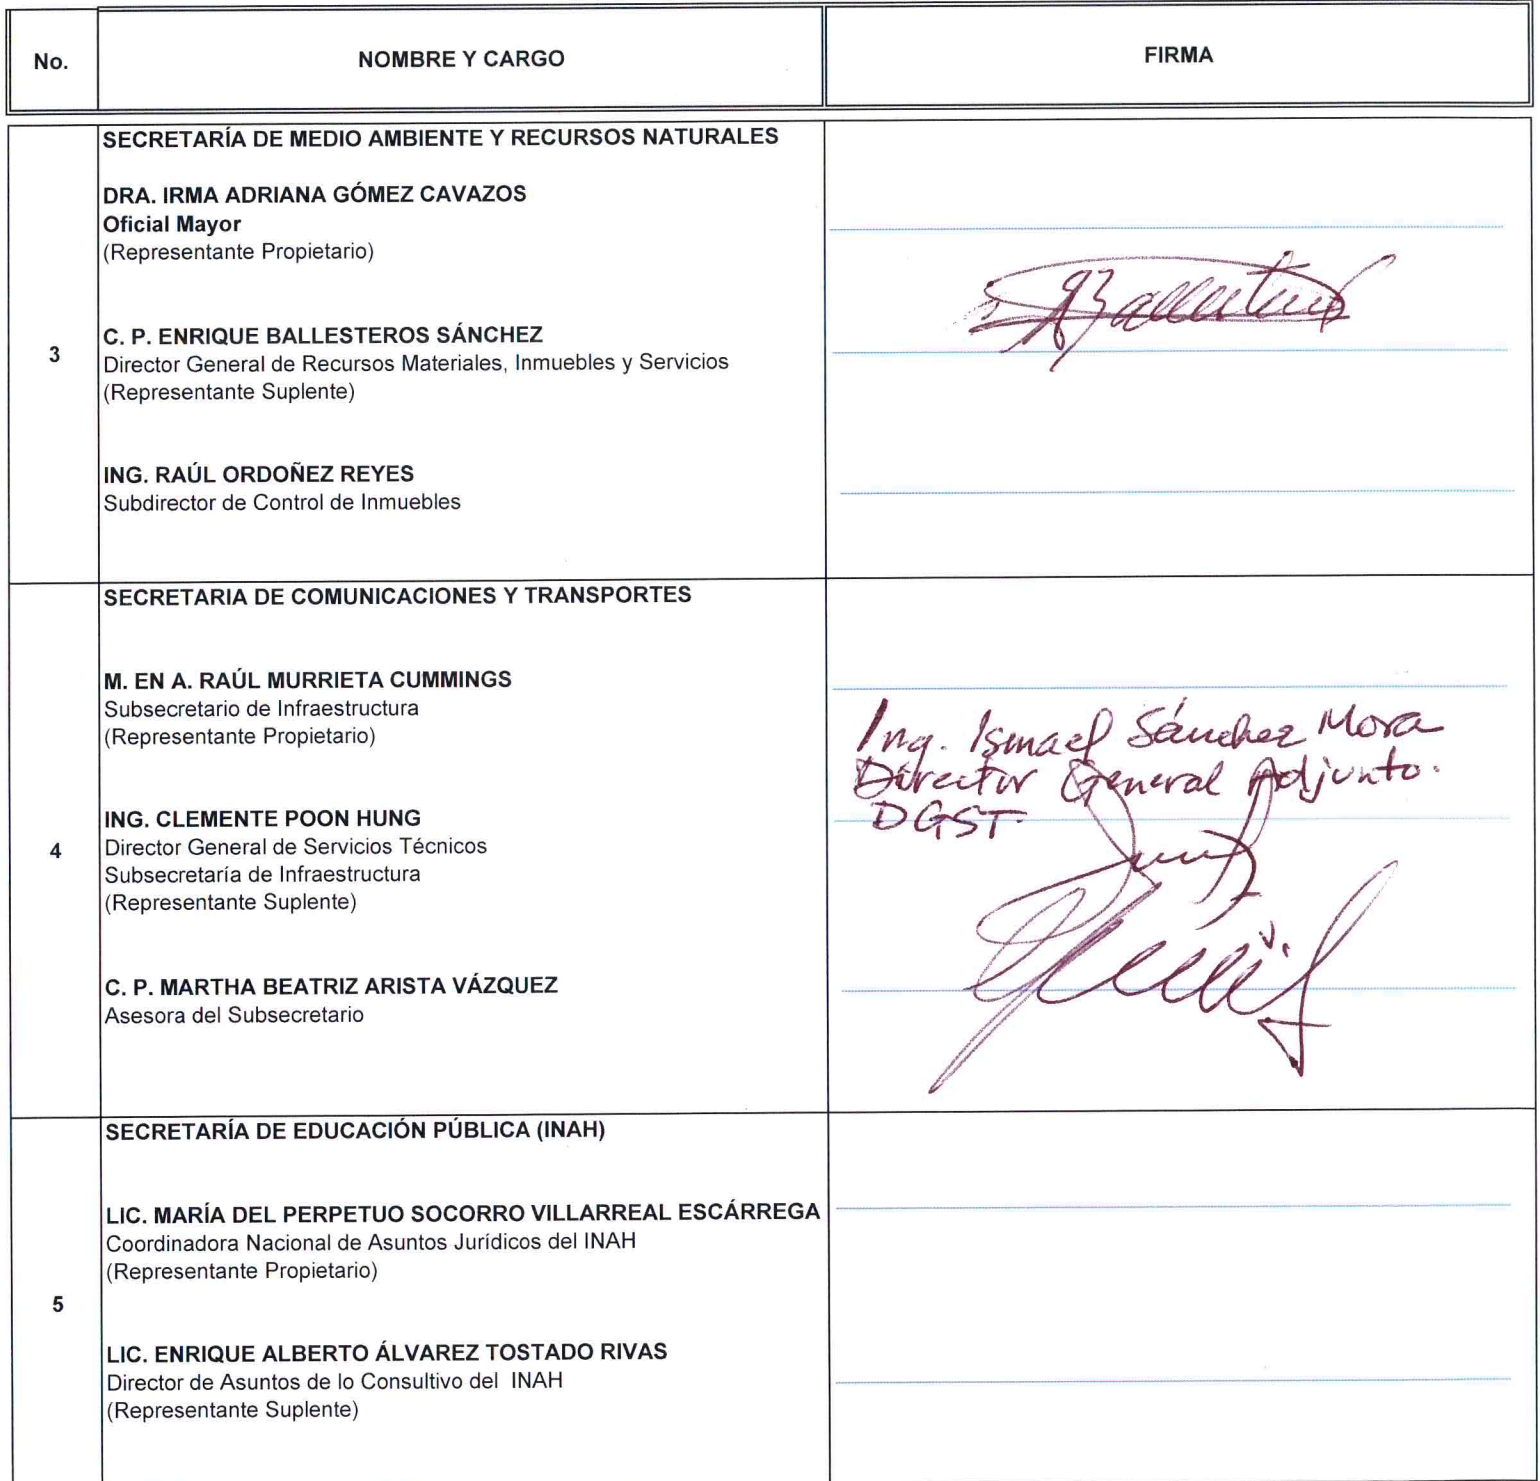 No.
NOMBRE Y CARGO
FIRMA
SECRETARÍA DE MEDIO AMBIENTE Y RECURSOS NATURALES
DRA. IRMA ADRIANA GÓMEZ CAVAZOS
Oficial Mayor
(Representante Propietario)
3
C. P. ENRIQUE BALLESTEROS SÁNCHEZ
Director General de Recursos Materiales, Inmuebles y Servicios
(Representante Suplente)
ING. RAÚL ORDOÑEZ REYES
Subdirector de Control de Inmuebles
SECRETARIA DE COMUNICACIONES Y TRANSPORTES
M. EN A. RAÚL MURRIETA CUMMINGS
Subsecretario de Infraestructura
(Representante Propietario)
Ing. Ismael Sánchez Mora
Director General Adjunto.
DGST.
4
ING. CLEMENTE POON HUNG
Director General de Servicios Técnicos
Subsecretaría de Infraestructura
(Representante Suplente)
C. P. MARTHA BEATRIZ ARISTA VÁZQUEZ
Asesora del Subsecretario
SECRETARÍA DE EDUCACIÓN PÚBLICA (INAH)
LIC. MARÍA DEL PERPETUO SOCORRO VILLARREAL ESCÁRREGA
Coordinadora Nacional de Asuntos Jurídicos del INAH
(Representante Propietario)
5
LIC. ENRIQUE ALBERTO ÁLVAREZ TOSTADO RIVAS
Director de Asuntos de lo Consultivo del INAH
(Representante Suplente)